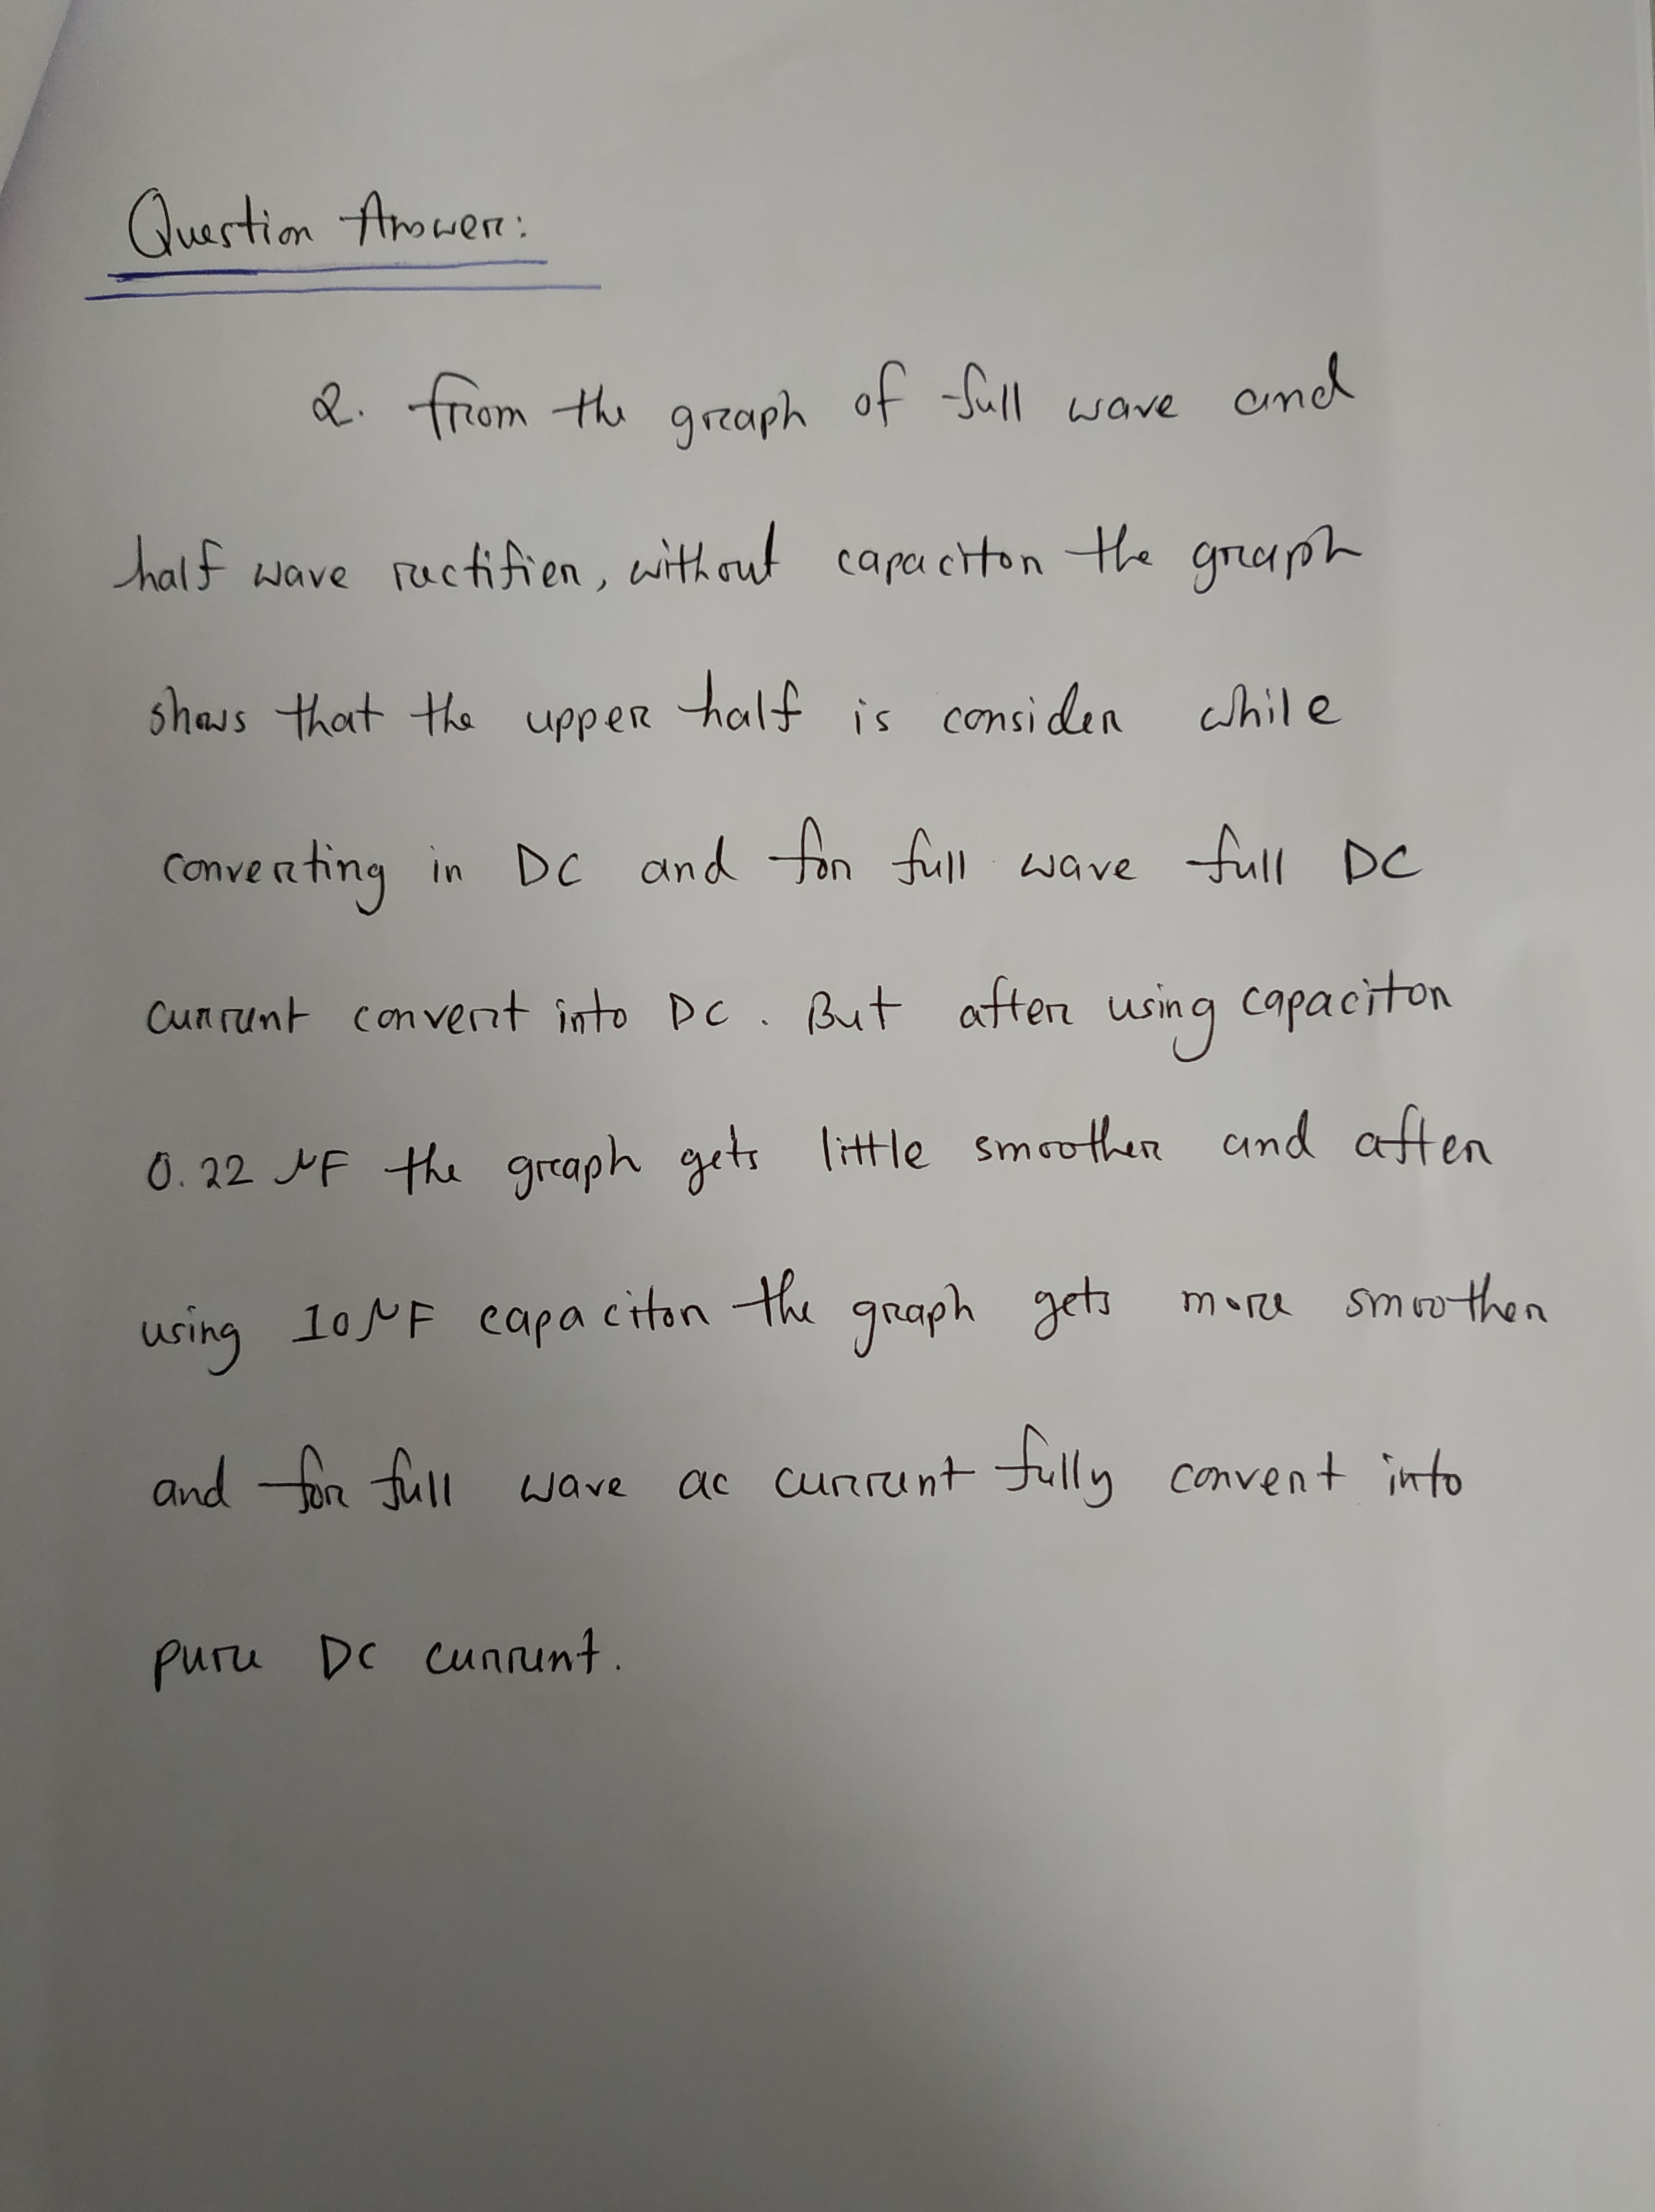 Question Answer:
2. from the graph of full wave and
half wave rectifier, without capacitor the graph
shows that the upper half is consider while
converting in DC and for full wave full DC
current convert into DC. But after using capacitor
0.22 μF the graph gets little smoother and after
using 10 μF capacitor the graph gets more smoother
and for full wave ac current fully convert into
pure DC current.